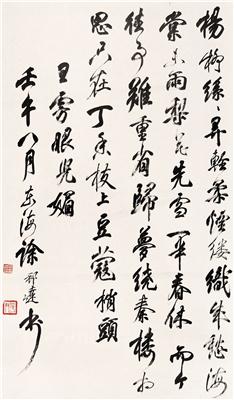 楊柳絲絲弄輕柔煙縷織成愁海
棠未雨梨花先雪一半春休而今
往事難重省歸夢繞秦樓相
思只在丁香枝上豆蔻梢頭
王雱眼兒媚
壬午八月東海徐邦達書